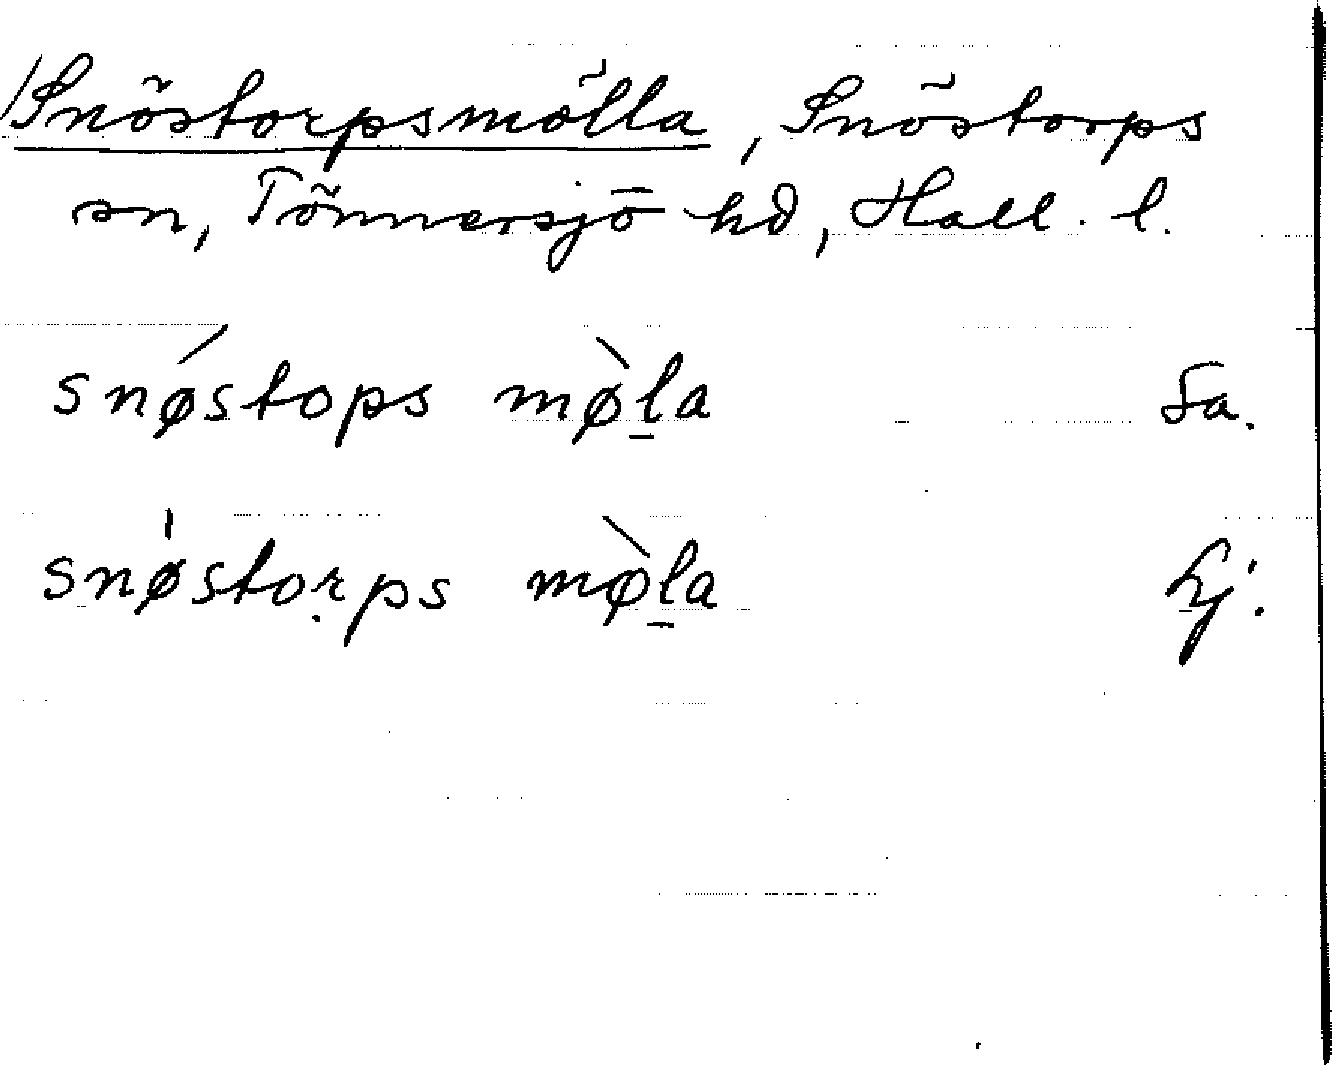 Snöstorpsmölla, Snöstorps
sn, Tönnersjö hd, Hall. l.
snǿstops mø̀l̠a Sa.
snø̍stoṛps mø̀l̠a Lj.